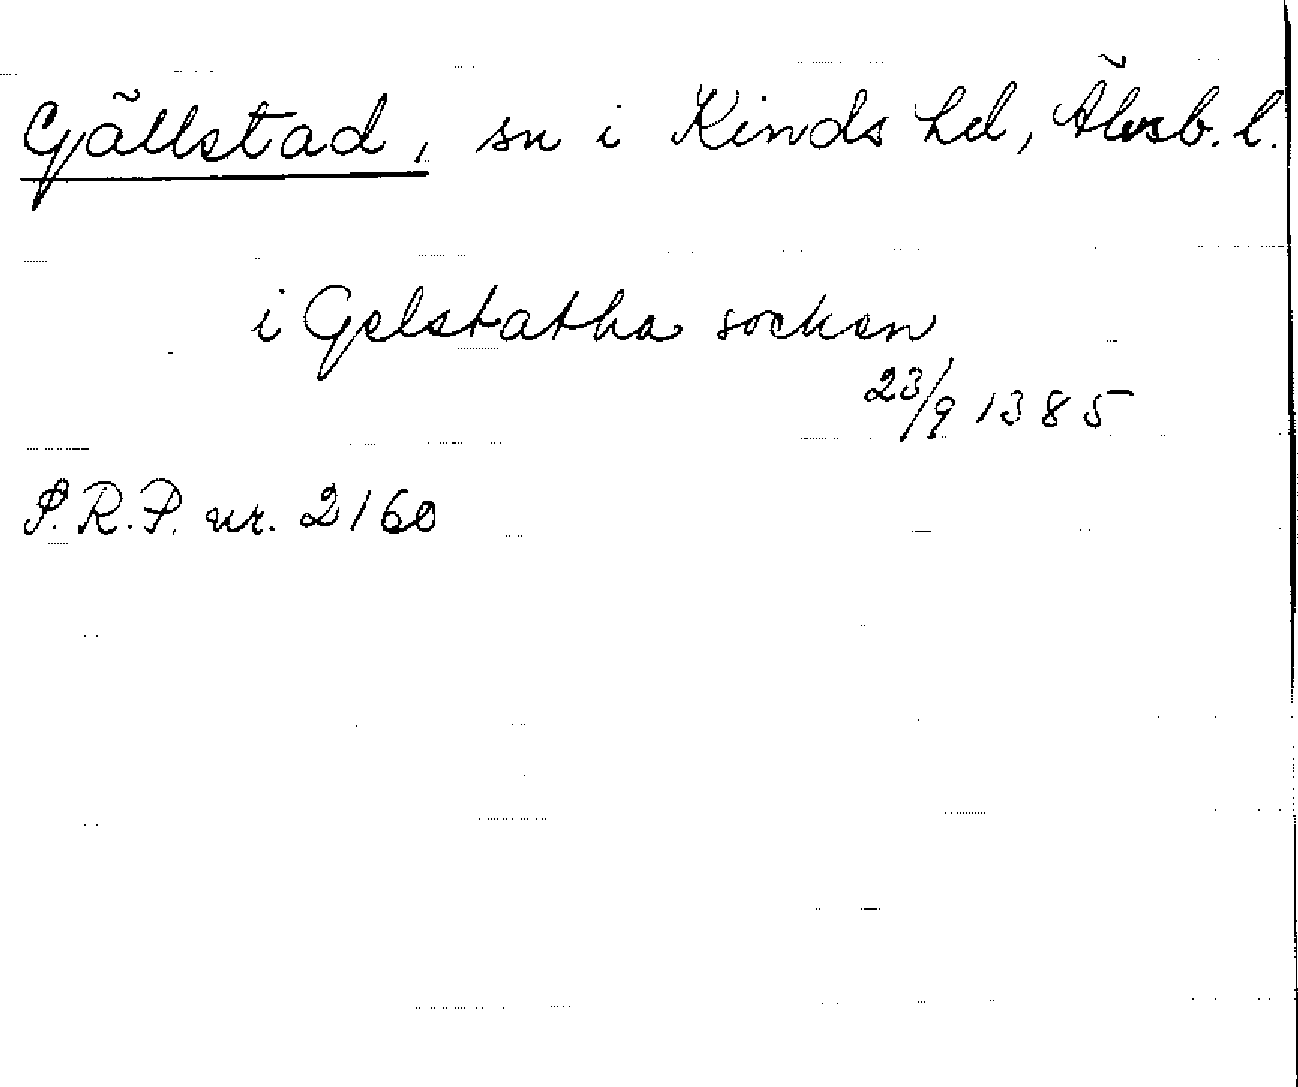 Gällstad, sn i Kinds hd, Älvsb. l.
i Gelstatha socken
23/9 1385
S.R.P. nr. 2160